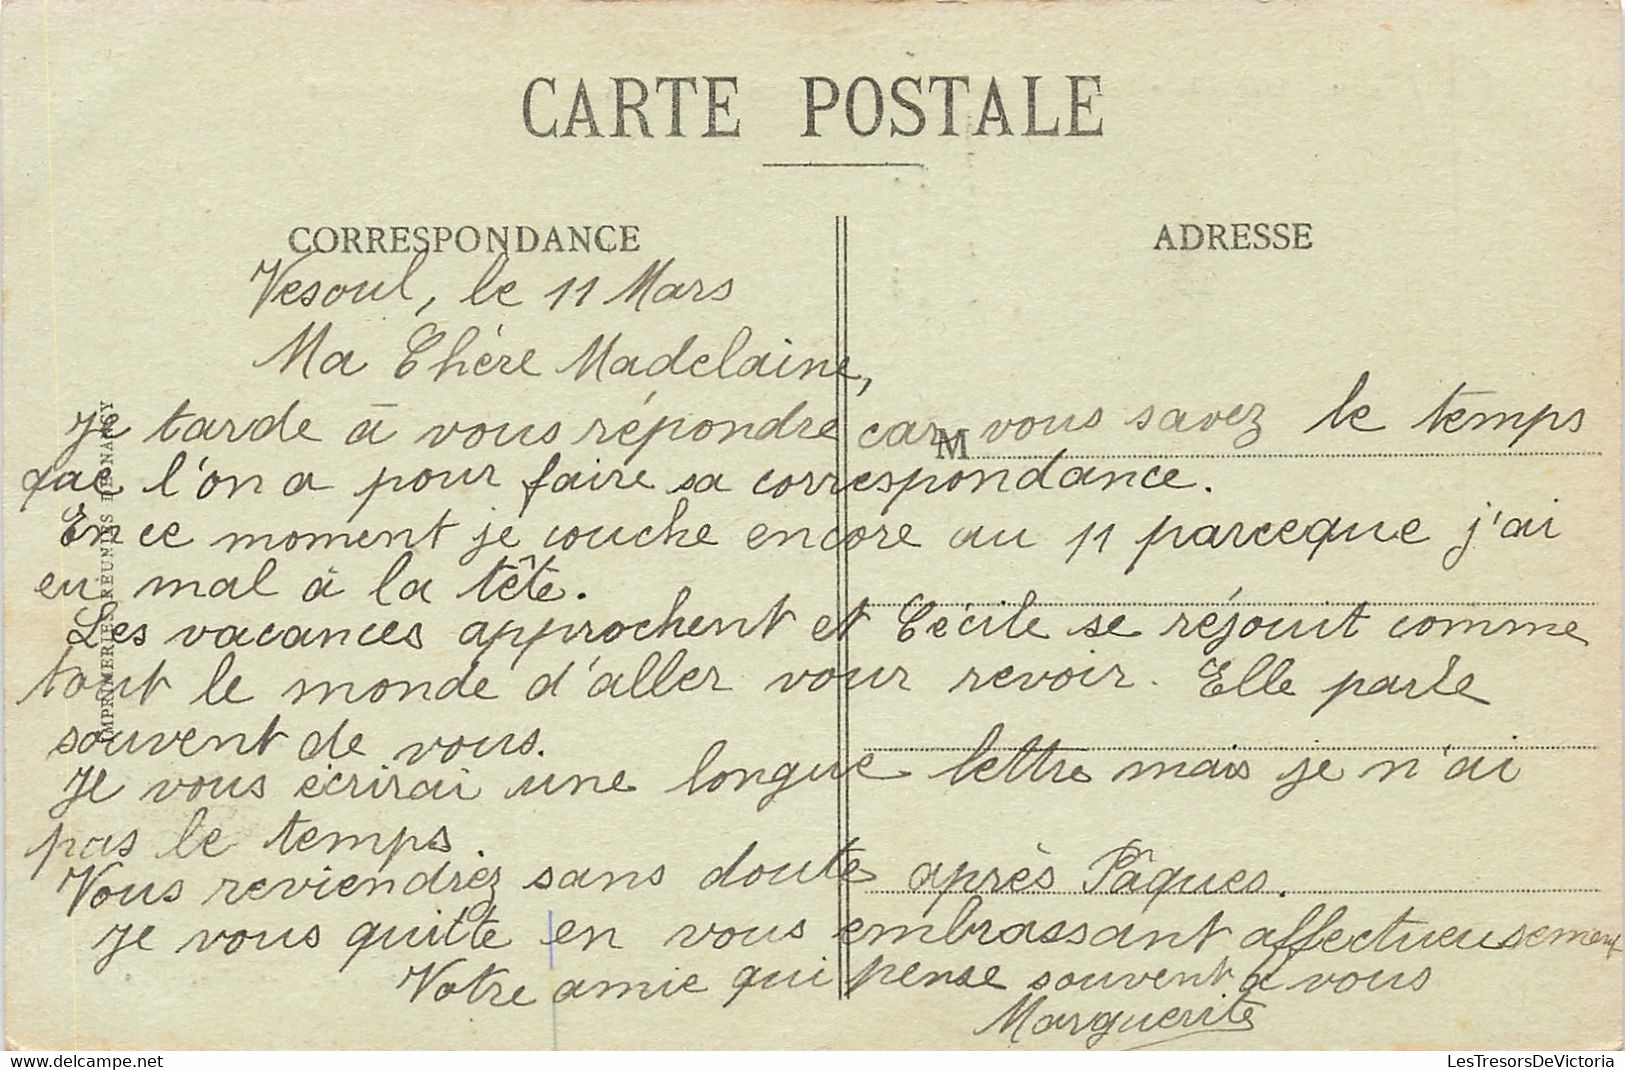 CARTE POSTALE
CORRESPONDANCE
ADRESSE
Vesoul, le 11 Mars
Ma Chère Madelaine,
Je tarde à vous répondre car vous savez le temps
M
que l'on a pour faire sa correspondance.
En ce moment je couche encore au 11 parceque j'ai
eu mal à la tête.
Les vacances approchent et Cécile se réjouit comme
tout le monde d'aller vour revoir. Elle parle
souvent de vous.
Je vous écrirai une longue lettre mais je n'ai
pas le temps.
Vous reviendrez sans doute après Pâques.
Je vous quitte en vous embrassant affectueusement
Votre amie qui pense souvent à vous
Marguerite
IMPRIMERIES RÉUNIES DE NANCY
www.delcampe.net
LesTresorsDeVictoria